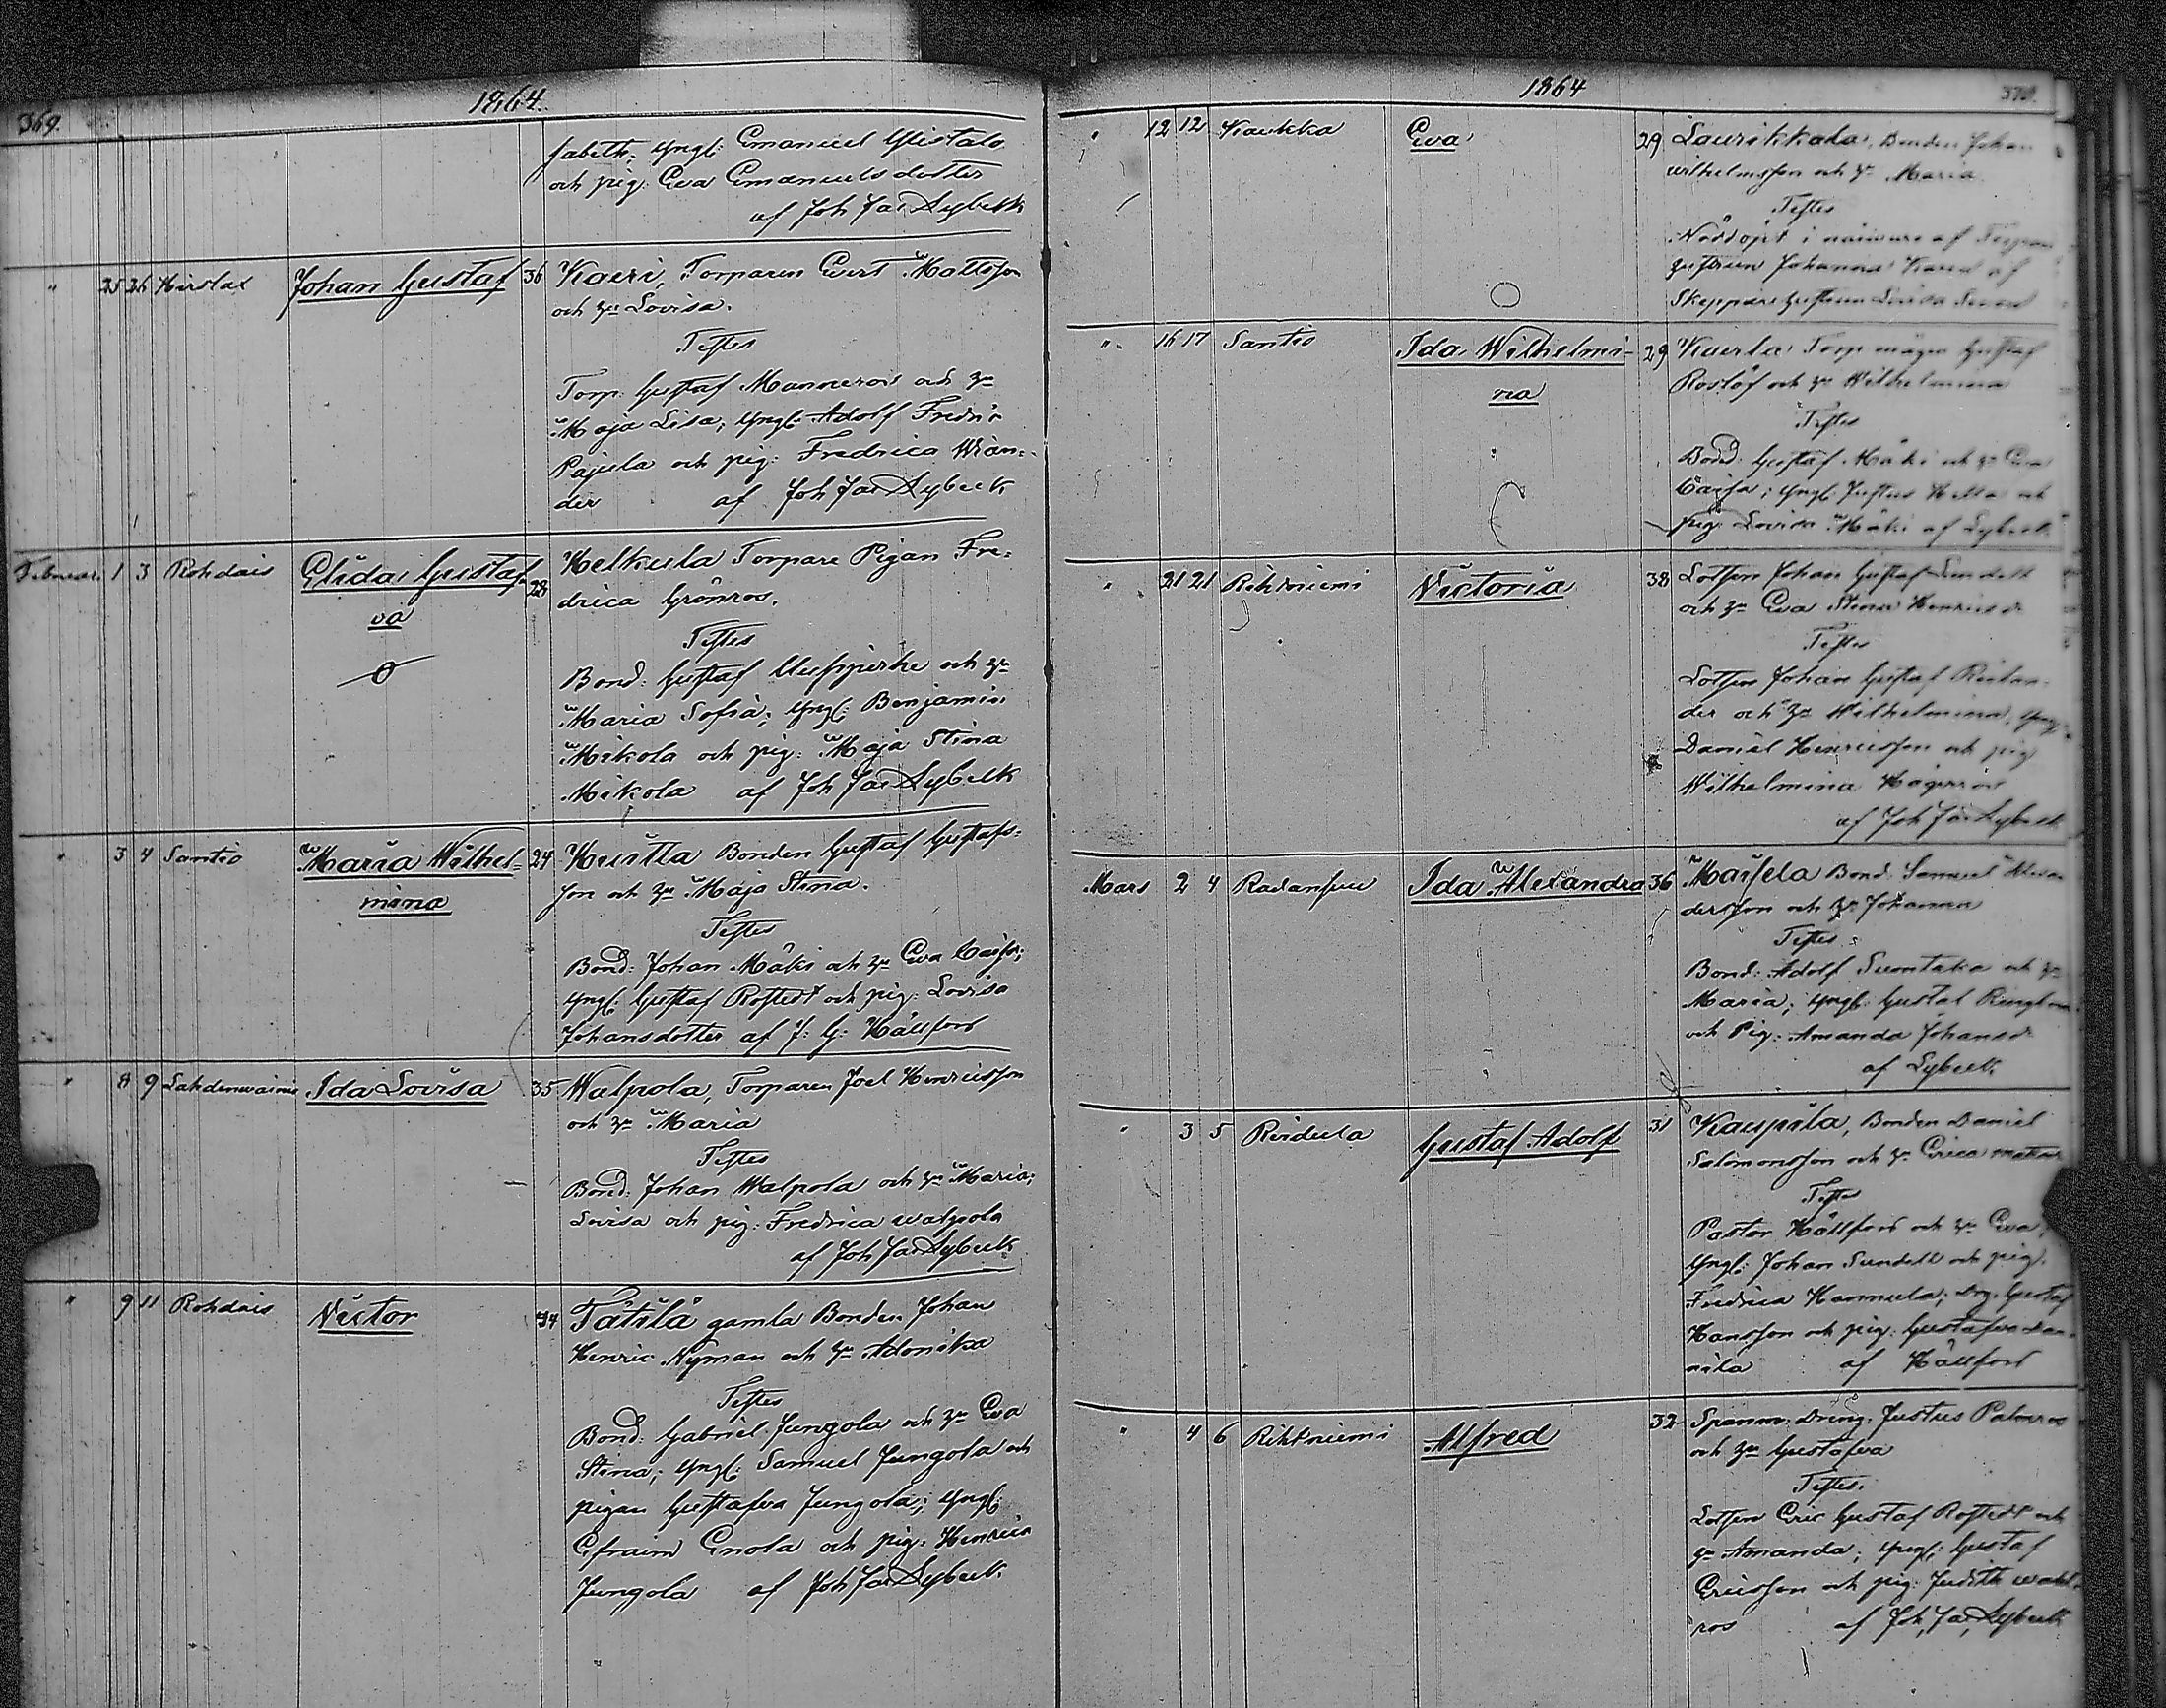 369.
1864.
sabeth; yngl: Emanuel Yläitalo
och pig: Eva Emanuelsdotter
af Joh Jac Lybeck
" 25 26 Hirslax Johan Gustaf 36 Kaeri, Torparen Evert Mattsson
och Hu Lovisa.
Testes
Torp: Gustaf Manneroos och Hu
Maja Lisa; yngl: Adolf Fredric
Pajula och pig: Fredrica Wian-
der af Joh Jac Lybeck
Februar. 1 3 Rohdais Elida Gustaf- 28 Helkula Torpare Pigan Fre-
va
drica Grönros.
Testes
Bond: Gustaf och Hu
Maria Sofia; yngl: Benjamin
Mikola och pig: Maja Stina
Mikola af Joh Jac Lybeck
" 3 4 Santio Maria Wilhel- 24 Huitla Bonden Gustaf Gustafs-
mina
son och Hu Maja Stina.
Testes
Bond: Johan Mäki och Hu Eva Caisa;
yngl: Gustaf Rostedt och pig: Lovisa
Johansdotter af J: G: Hällfors
" 8 9 Lahdenvainio Ida Lovisa 35 Walpola, Torparen Joel Henricsson
och Hu Maria
Testes
Bond: Johan Walpola och Hu Maria;
Lovisa och pig: Fredrica Walpola
af Joh Jac Lybeck
" 9 11 Rohdais Victor 34 Tätilä gamla Bonden Johan
Henric Nyman och Hu Adonika
Testes
Bond: Gabriel Jungola och Hu Eva
Stina; yngl: Samuel Jungola och
pigan Gustafva Jungola; yngl:
Efraim Enola och pig: Henrica
Jungola af Joh Jac Lybeck
1864
370.
" 12 12 Kaukka Eva 29 Laurikkala, Bonden Johan
Wilhelmsson och Hu Maria
Testes
Nöddöpt i närvaro af Torpare
hustrun Johanna af
Skeppare hustrun Lovisa
" 16 17 Santio Ida Wilhelmi- 29 Kaerla Torp mågen Gustaf
na
Roslöf och Hu Wilhelmina
Testes
Bond: Gustaf Mäki och Hu Eva
Caisa; yngl: Justus och
pig: Lovisa Mäki af Lybeck
" 21 21 Rihtniemi Victoria 38 Lotsen Johan Gustaf Sundell
och Hu Eva Stina Henricsd:
Testes
Lotsen Johan Gustaf Rislan-
der och Hu Wilhelmina, yngl:
Daniel Henricsson och pig
Wilhelmina Hägerroos
af Joh Jac Lybeck
Mars 2 4 Radansuu Ida Alexandra 36 Maisela Bond: Samuel Alexan
dersson och Hu Johanna
Testes
Bond: Adolf Suontaka och Hu
Maria; yngl: Gustaf Ringbom
och Pig: Amanda Johansd:
af Lybeck.
" 3 5 Reidula Gustaf Adolf 31 Kaupila, Bonden Daniel
Salomonsson och Hu Erica
Testes
Pastor Hällfors och Hu Eva;
yngl: Johan Sundell och pig:
Fredrica Hannula; Drg: Gustaf
Hansson och pig: Gustafva Dan-
nila af Hällfors
" 4 6 Rihtniemi Alfred 32 Spanm: Dräng: Justus Palmroos
och Hu Gustafva
Testes.
Lotsen Eric Gustaf Rostedt och
Hu Amanda; yngl: Gustaf
Ericsson och pig: Judith Wahl-
ros af Joh, Jac, Lybeck